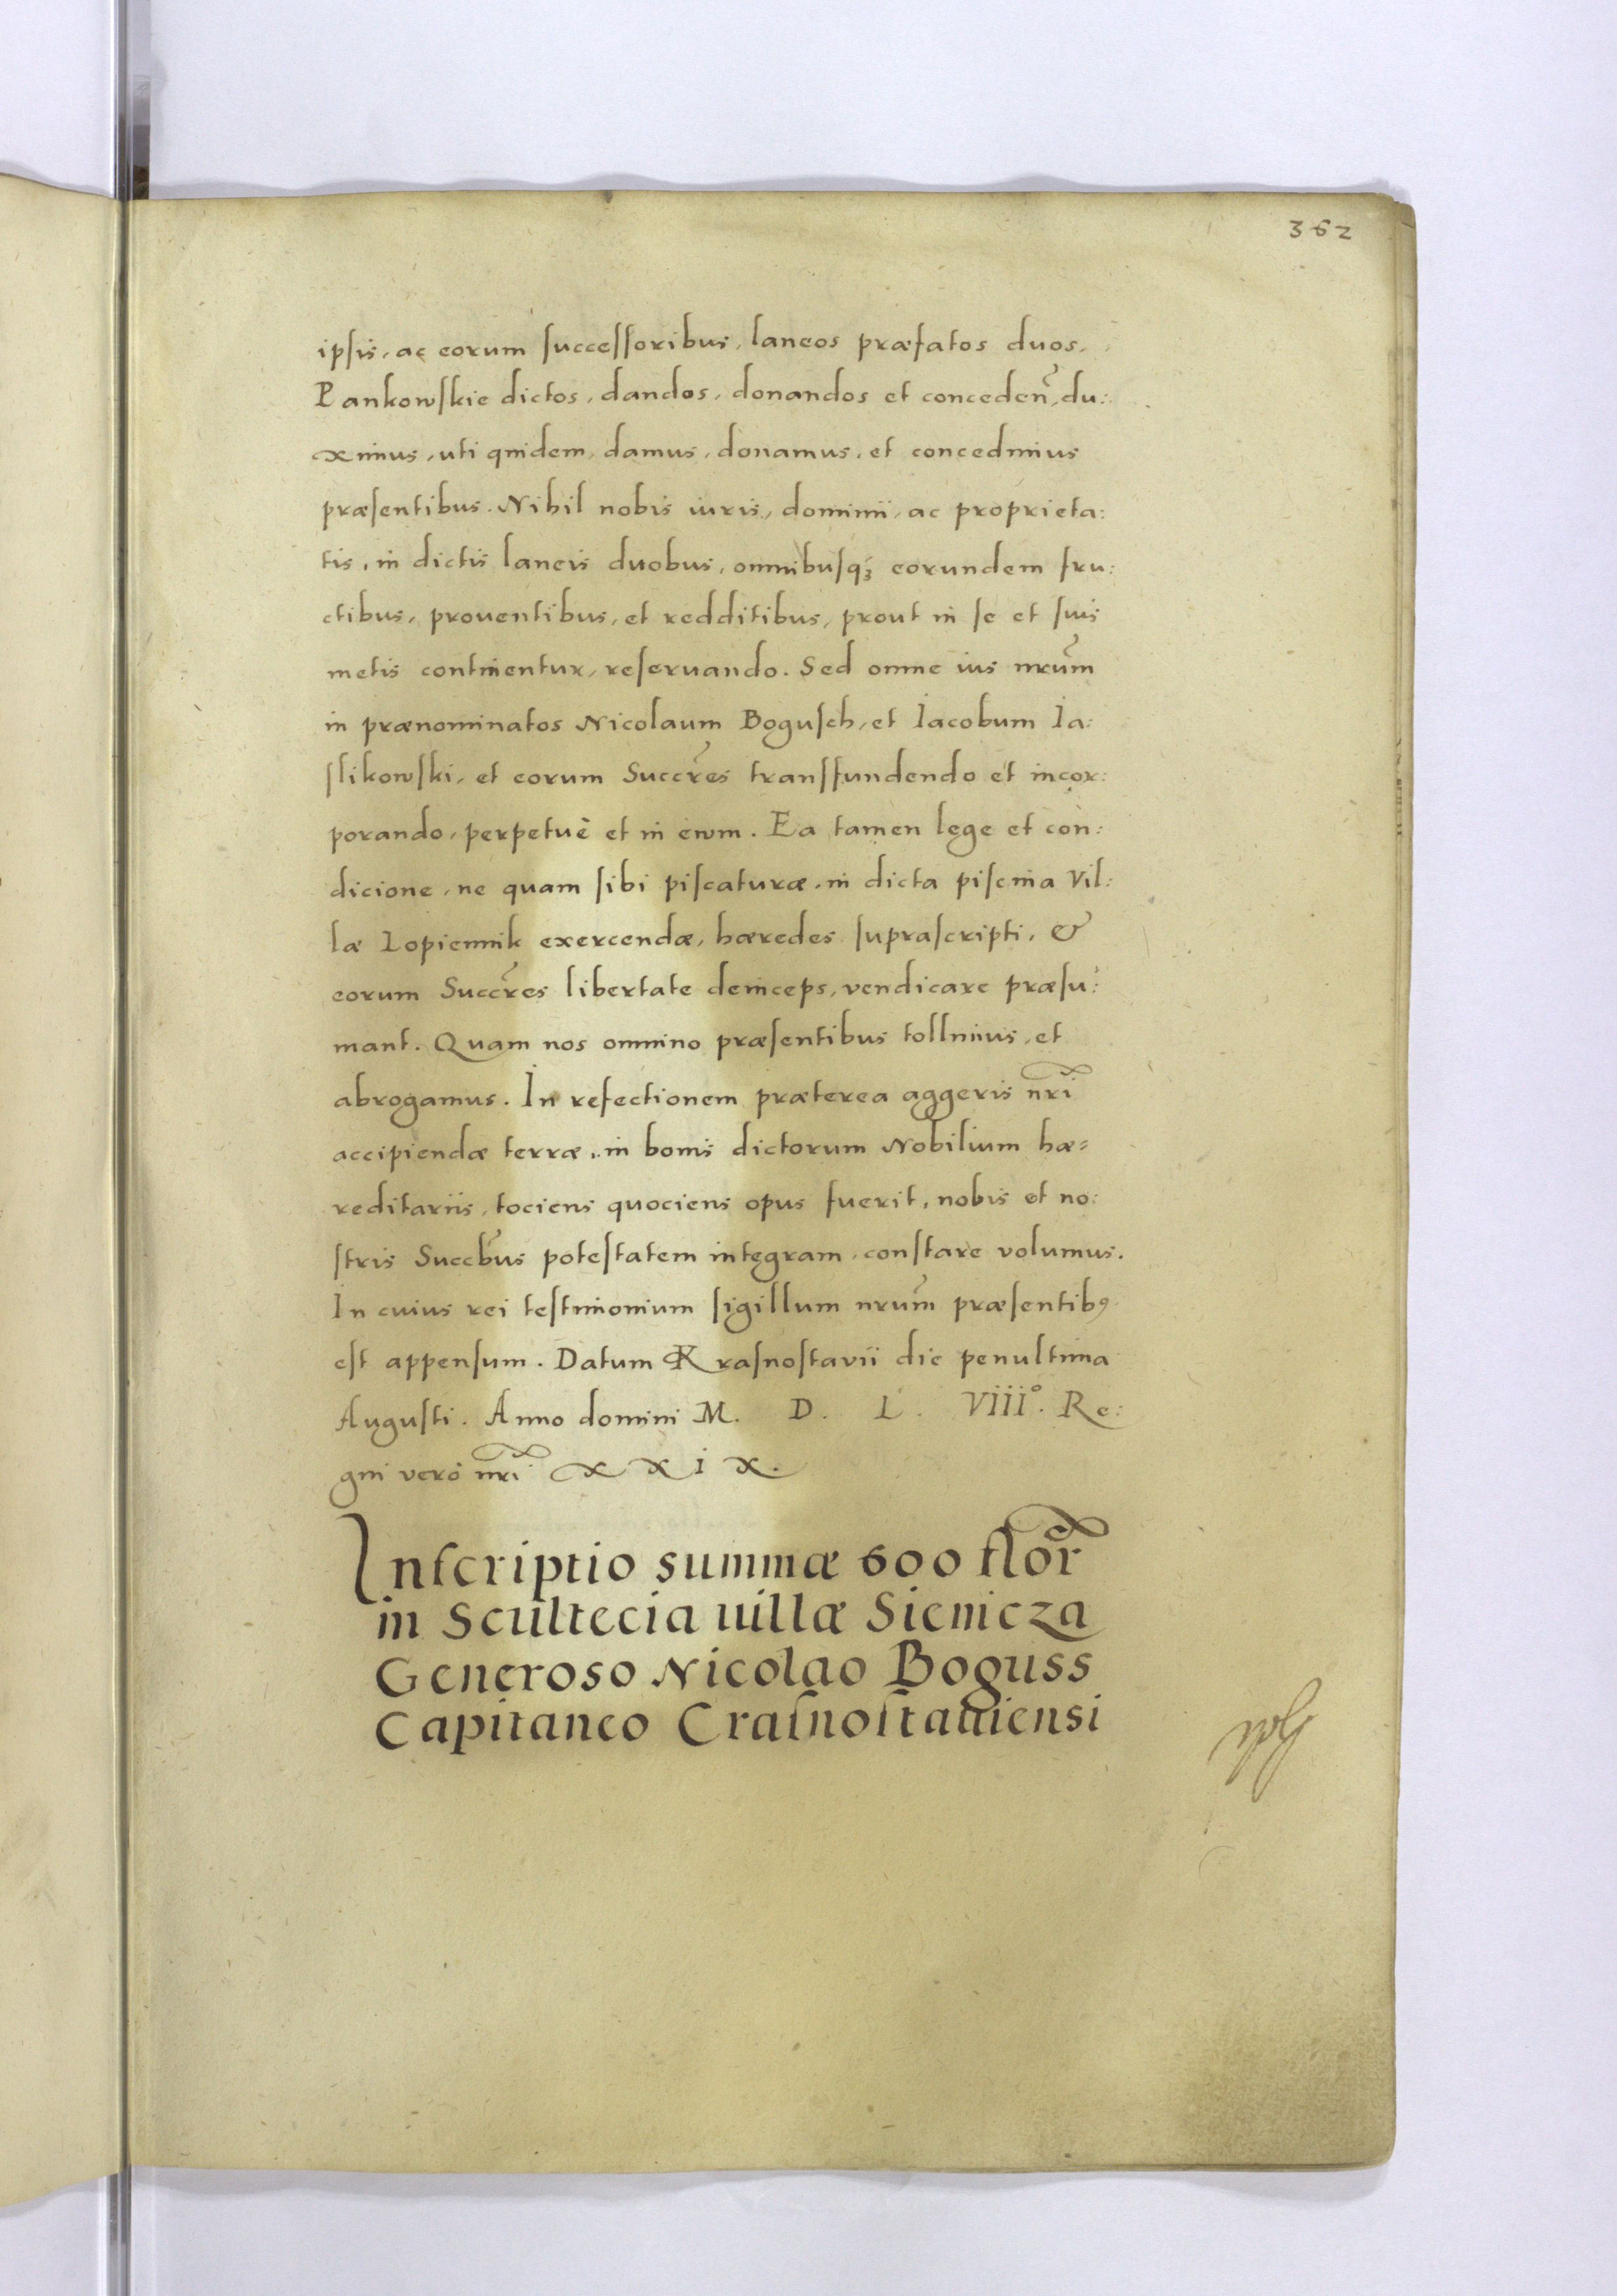 362
ipsis, ac eorum successoribus, laneos præfatos duos,
Pankowskie dictos, dandos, donandos et conceden̄, du:
ximus, uti quidem, damus, donamus, et concedimus
præsentibus. Nihil nobis iuris, dominii, ac proprieta:
tis, in dictis laneis duobus, omnibusq́ꝫ eorundem fru:
ctibus, prouentibus, et redditibus, prout in se et suis
metis continentur, reseruando. Sed omne ius nrūm
in prænominatos Nicolaum Bogusch, et Iacobum Ia:
slikowski, et eorum Succr̄es transfundendo et incor:
porando, perpetuè et in ęwm. Ea tamen lege et con:
dicione, ne quam sibi piscaturæ, in dicta piscina Vil:
læ Lopiennik exercendæ, hæredes suprascripti, &
eorum Succr̄es libertate deinceps, vendicare præsu:
mant. Quam nos omnino præsentibus tollimus, et
abrogamus. In refectionem præterea aggeris nr̄i
accipiendæ terræ, in bonis dictorum Nobilium hæ=
reditariis, tociens quociens opus fuerit, nobis et no:
stris Succb̄us potestatem integram, constare volumus.
In cuius rei testimonium sigillum nrūm præsentibꝯ
est appensum. Datum Krasnostavii die penultima
Augusti. Anno domini M. D. L. VIII°. Re:
gni verò nr̄i XXIX.
Inscriptio summæ 600 flor̄
in Scultecia uillæ Sienicza
Generoso Nicolao Boguss
Capitaneo Crasnostauiensi